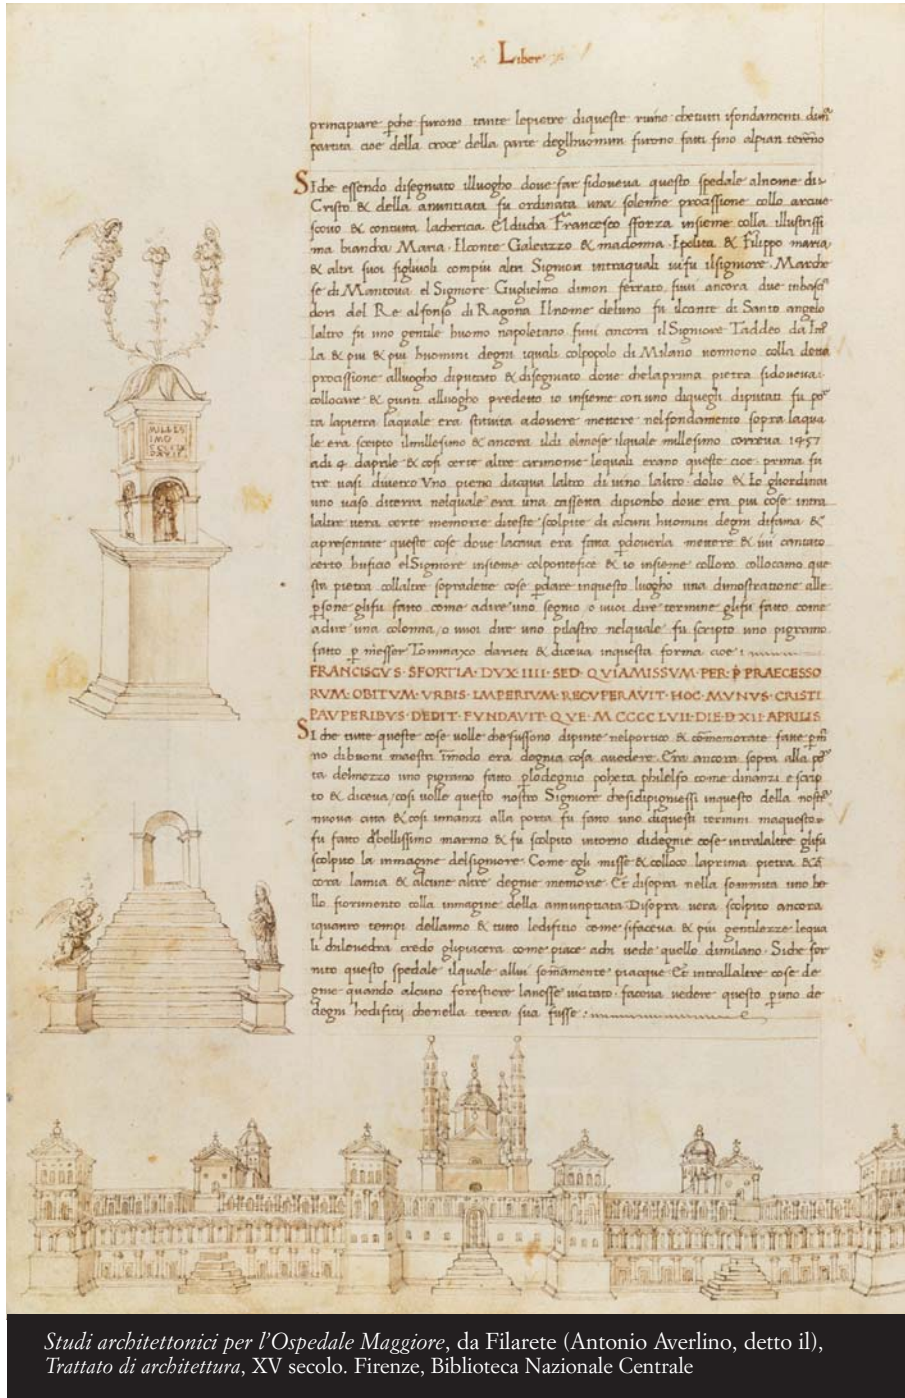 Liber
principiare p̱che furono tante lepietre diqueste ruine chetutti ifondamenti duna
partita cioe della croce della parte deglhuomini furono fatti fino alpian tereno
Siche essendo disegniato illuogho doue far sidoueua questo spedale alnome di
Cristo & della anuntiata fu ordinata una solenne procissione collo arciue
scouo & contutta lachericia. El ducha Francesco sforza insieme colla illustrissi
ma biancha Maria. Ilconte Galeazzo & madonna Ipolita & Filippo maria
& altri suoi figliuoli compiu altri Signiori intraquali uifu ilsigniore Marche
se di Mantoua el Signiore Guglielmo dimon ferrato, fuui ancora due inbasci
dori del Re alfonso di Ragona Ilnome deluno fu ilconte di Santo angelo
laltro fu uno gentile huomo napoletano fuui ancora il Signiore Taddeo da Imo
la & piu & piu huomini degni iquali colpopolo di Milano uennono colla detta
procissione alluogho diputato & disegniato doue chelaprima pietra sidoueua
collocare & giunti alluogho predetto io insieme con uno diquegli diputati fu po
ta lapietra laquale era stituita adouere mettere nelfondamento sopra laqua
le era scripto ilmillesimo & ancora ildi elmese ilquale millesimo correua 1457
adi 4 daprile & cosi certe altre cirimonie lequali erano queste cioe prima fu
tre uasi diuetro Vno pieno dacqua laltro di uino laltro dolio & Io ghordinai
uno uaso diterra nelquale era una cassetta dipionbo doue era piu cose intra
laltre uera certe memorie diteste scolpite di alcuni huomini degni difama &
apresentate queste cose doue lacaua era fatta p̱douerla mettere & iui cantato
certo huficio elSigniore insieme colpontefice & io insieme colloro collocamo que
sta pietra collaltre sopradette cose p̱dare inquesto luogho una dimostratione alle
p̱sone glisu fatto come adire uno segnio o uuoi dire termine glifu fatto come
adire una colonna o uuoi dire uno pilastro nelquale fu scripto uno pigramo
fatto p̱ messer Tommaxo darieti & diceua inquesta forma cioe
FRANCISCVS · SFORTIA · DVX · IIII · SED · QVIAMISSVM · PER · P̱ PRAECESSO
RVM · OBITVM · VRBIS · IMPERIVM · RECVPERAVIT · HOC · MVNVS · CRISTI
PAVPERIBVS · DEDIT · FVNDAVIT · QVE · M CCCC LVII · DIE · D XII · APRILIS
Si che tutte queste cose uolle che fussono dipinte nelportico & comemorate fatte p̱ma
no dibuoni maestri imodo era degnia cosa auedere. Era ancora sopra alla por
ta delmezzo uno pigramo fatto p̱lodegnio poheta philelfo come dinanzi e scrip
to & diceua, cosi uolle questo nostro Signiore chesidipigniessi inquesto della nostra
nuoua citta & cosi innanzi alla porta fu fatto uno diquesti termini maquesto
fu fatto dbellissimo marmo & fu scolpito intorno didegnie cose intralaltre glifu
scolpito la inmagine delsigniore. Come egli misse & colloco laprima pietra & an
cora lamia & alcune altre degnie memorie. Et disopra nella sommita uno be
llo fiorimento colla inmagine della annunptiata Disopra uera scolpito ancora
iquatro tempi dellanno & tutto ledifitio come sifaceua & piu gentilezze lequa
li chileuedra credo glipiacera come piace achi uede quello dimilano. Siche for
nito questo spedale ilquale allui somamente piacque. Et intrallaltre cose de
gnie quando alcuno forestiere lauesse uicitato faceua uedere questo p̱uno de
degni hedifitij chenella terra sua fusse
MILLES
IMO
Studi architettonici per l'Ospedale Maggiore, da Filarete (Antonio Averlino, detto il),
Trattato di architettura, XV secolo. Firenze, Biblioteca Nazionale Centrale